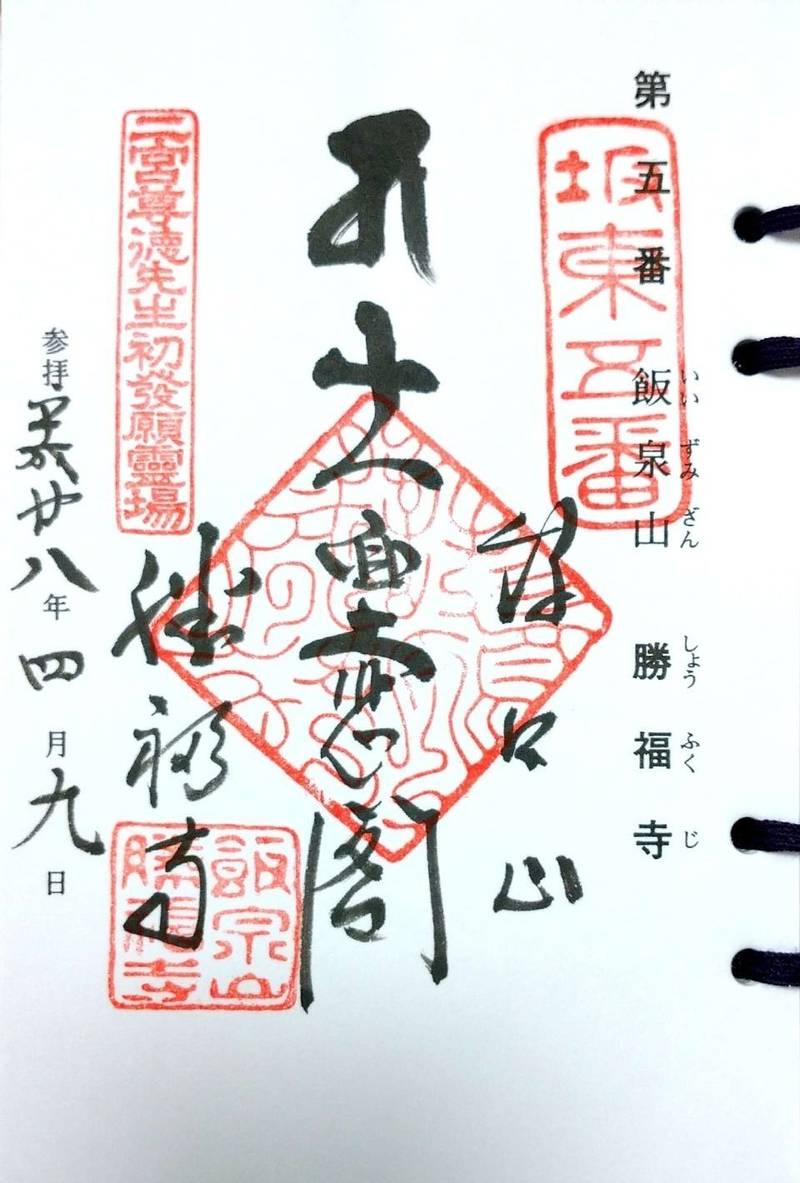 第五番 飯泉山 勝福寺
いいずみざん しょうふくじ
坂東五番
飯泉山
十一面大悲閣
勝福寺
飯泉山
勝福寺
二宮尊徳先生初發願靈場
参拝平成廿八年四月九日